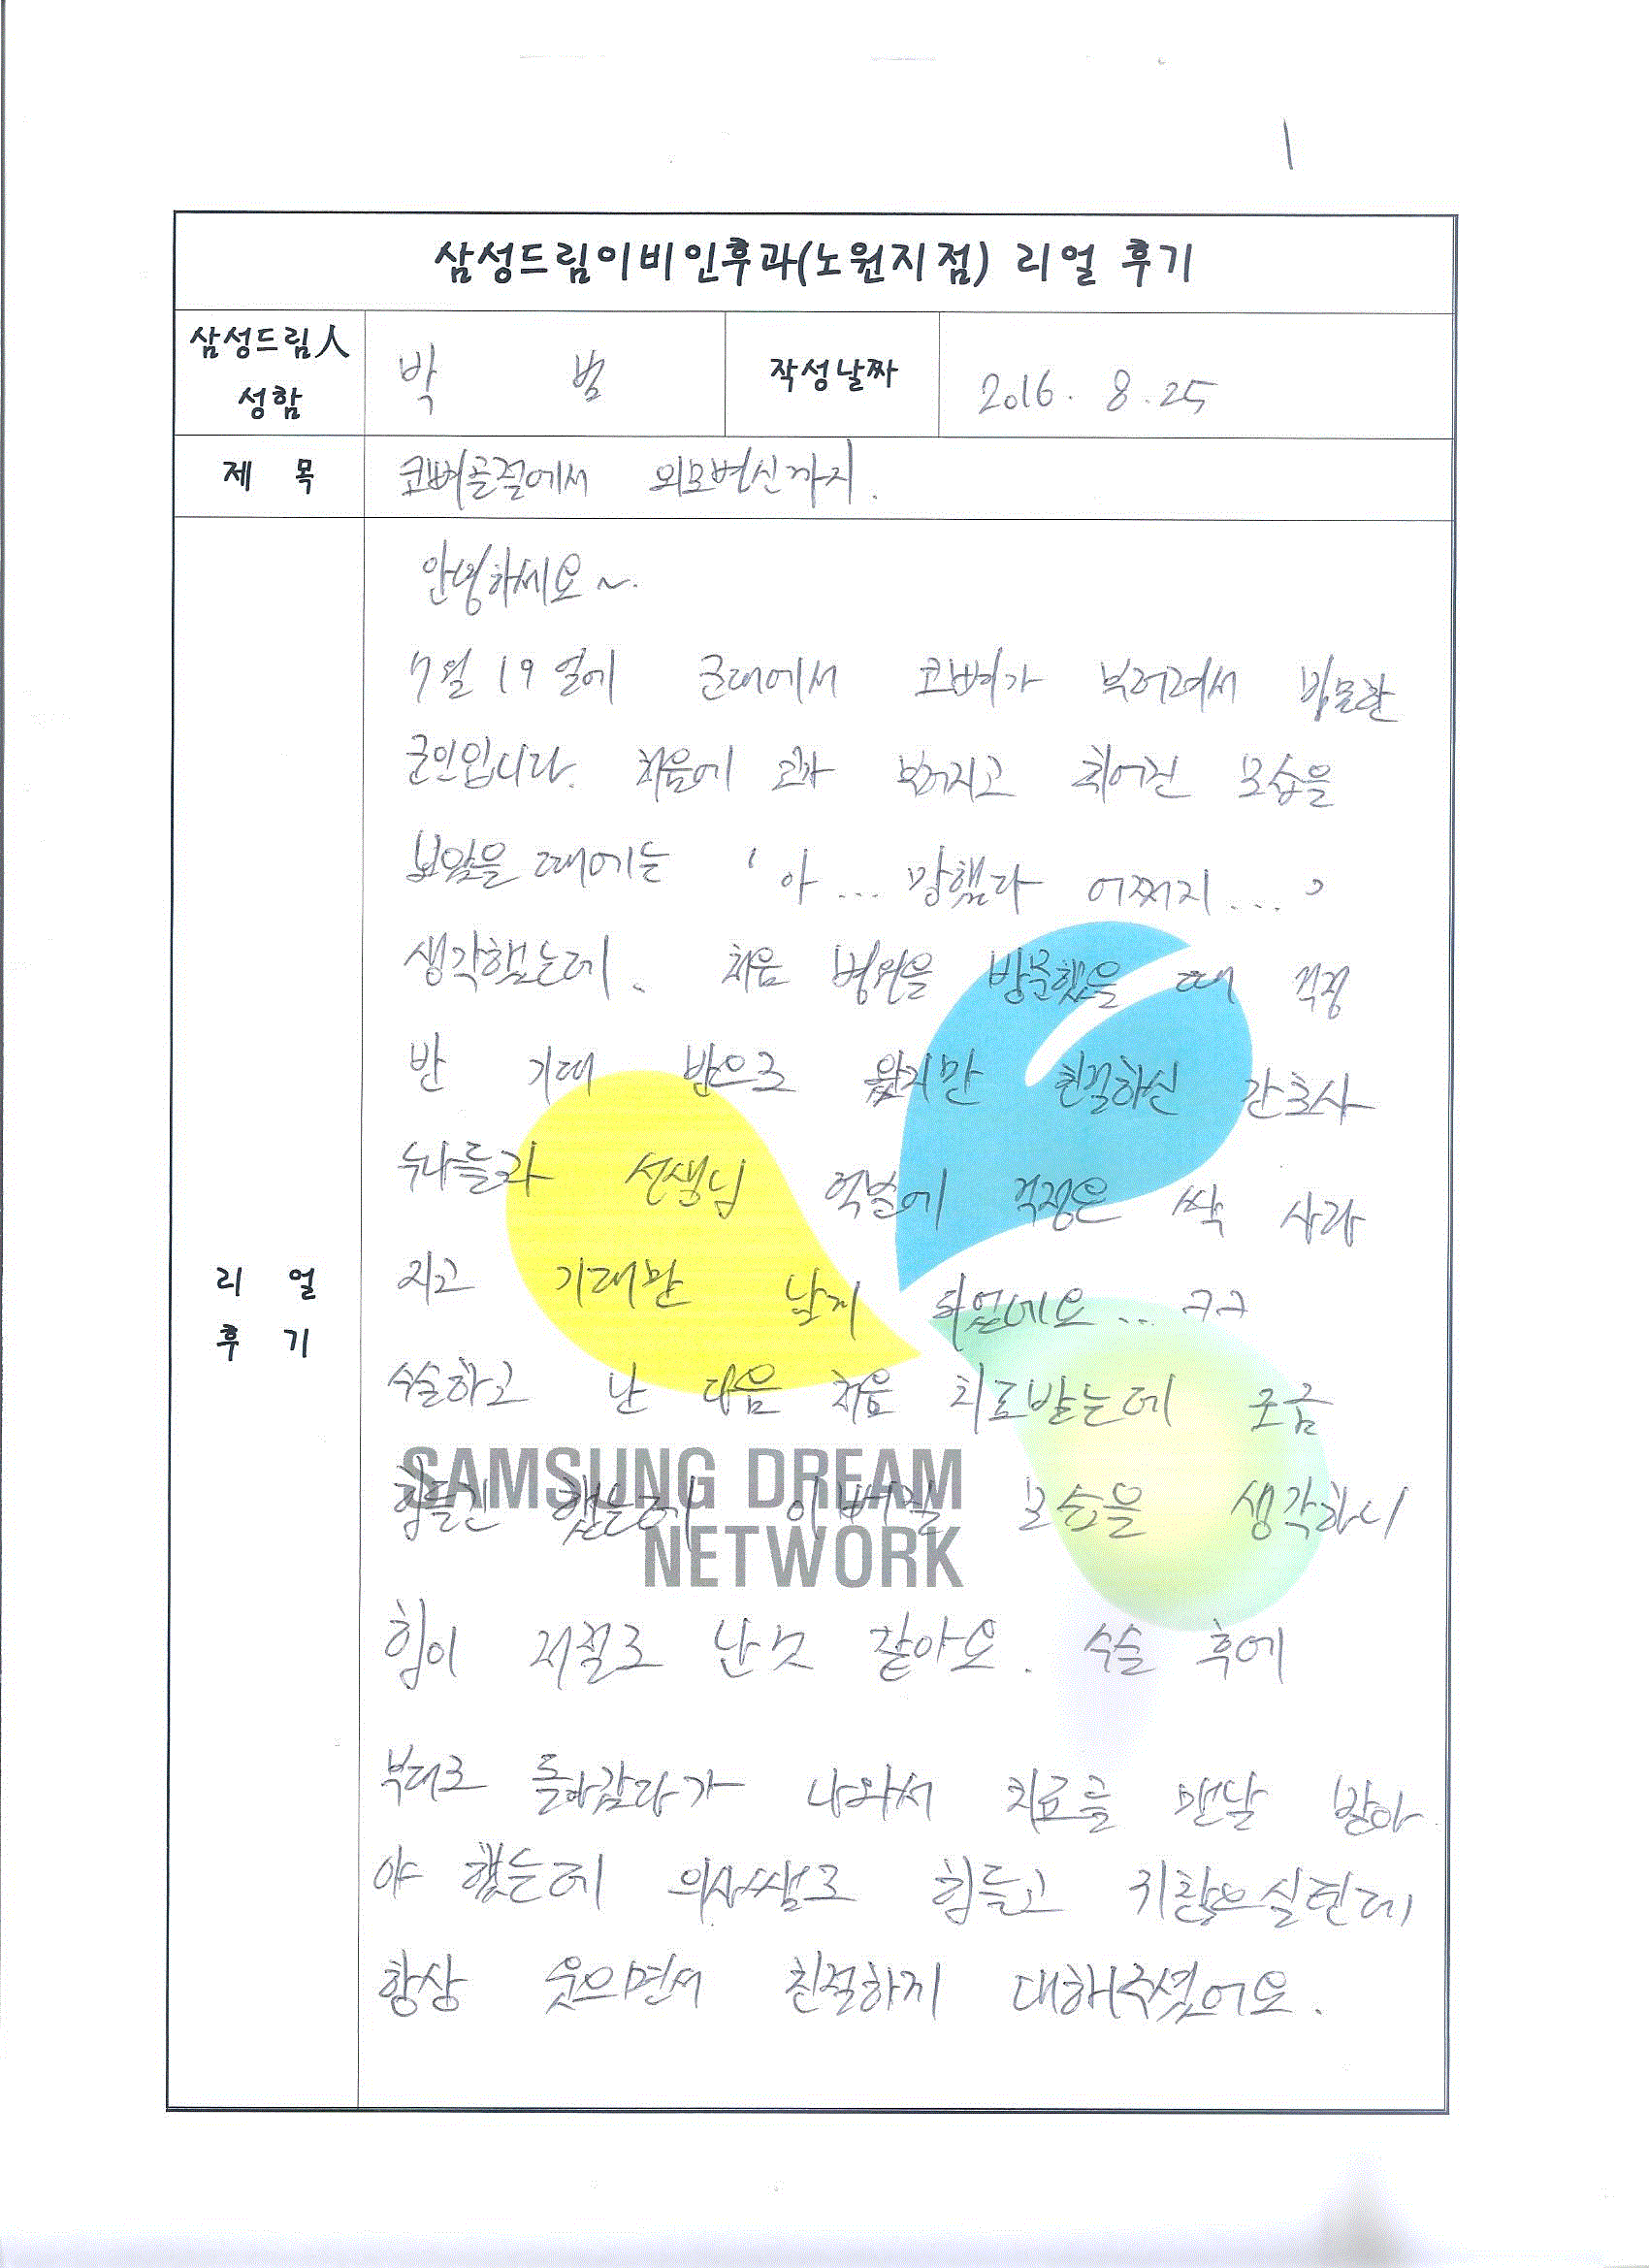 1
삼성드림이비인후과(노원지점) 리얼 후기
삼성드림人
성함
박 범
작성날짜
2016. 8. 25
제 목
코뼈골절에서 외모변신까지.
안녕하세요~.
7월 19일에 군대에서 코뼈가 부러져서 방문한
군인입니다. 처음에 코가 부러지고 휘어진 모습을
보았을 때에는 '아... 망했다 어쩌지...'
생각했는데. 처음 병원을 방문했을 때 걱정
반 기대 반으로 왔지만 친절하신 간호사
누나들과 선생님 덕분에 걱정은 싹 사라
지고 기대만 남게 되었네요... ㅋㅋ
수술하고 난 다음 처음 치료받는데 조금
힘들긴 했는데 이뻐질 모습을 생각하니
SAMSUNG DREAM
NETWORK
힘이 저절로 난것 같아요. 수술 후에
부대로 돌아갔다가 나와서 치료를 맨날 받아
야 했는데 의사쌤도 힘들고 귀찮으실텐데
항상 웃으면서 친절하게 대해주셨어요.
리 얼
후 기